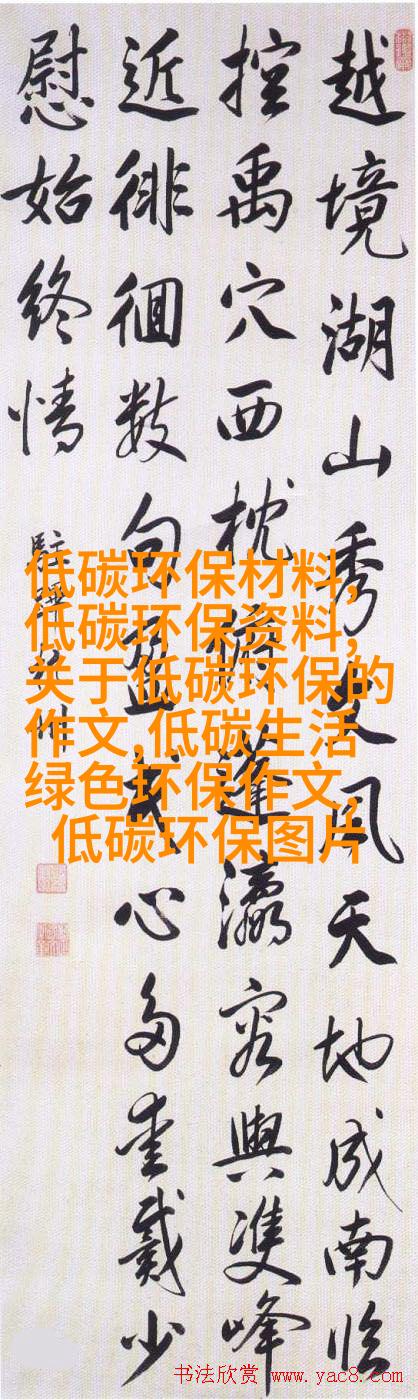 越境湖山秀文風天地成南临
控禹穴西枕蓬瀛容與雙峰
近徘徊数句我心多愛戴少
慰始終情
駐蹕杭州
低碳环保材料,
低碳环保资料,
关于低碳环保的
作文,低碳生活
绿色环保作文,
低碳环保图片
书法欣赏 www.yac8.com